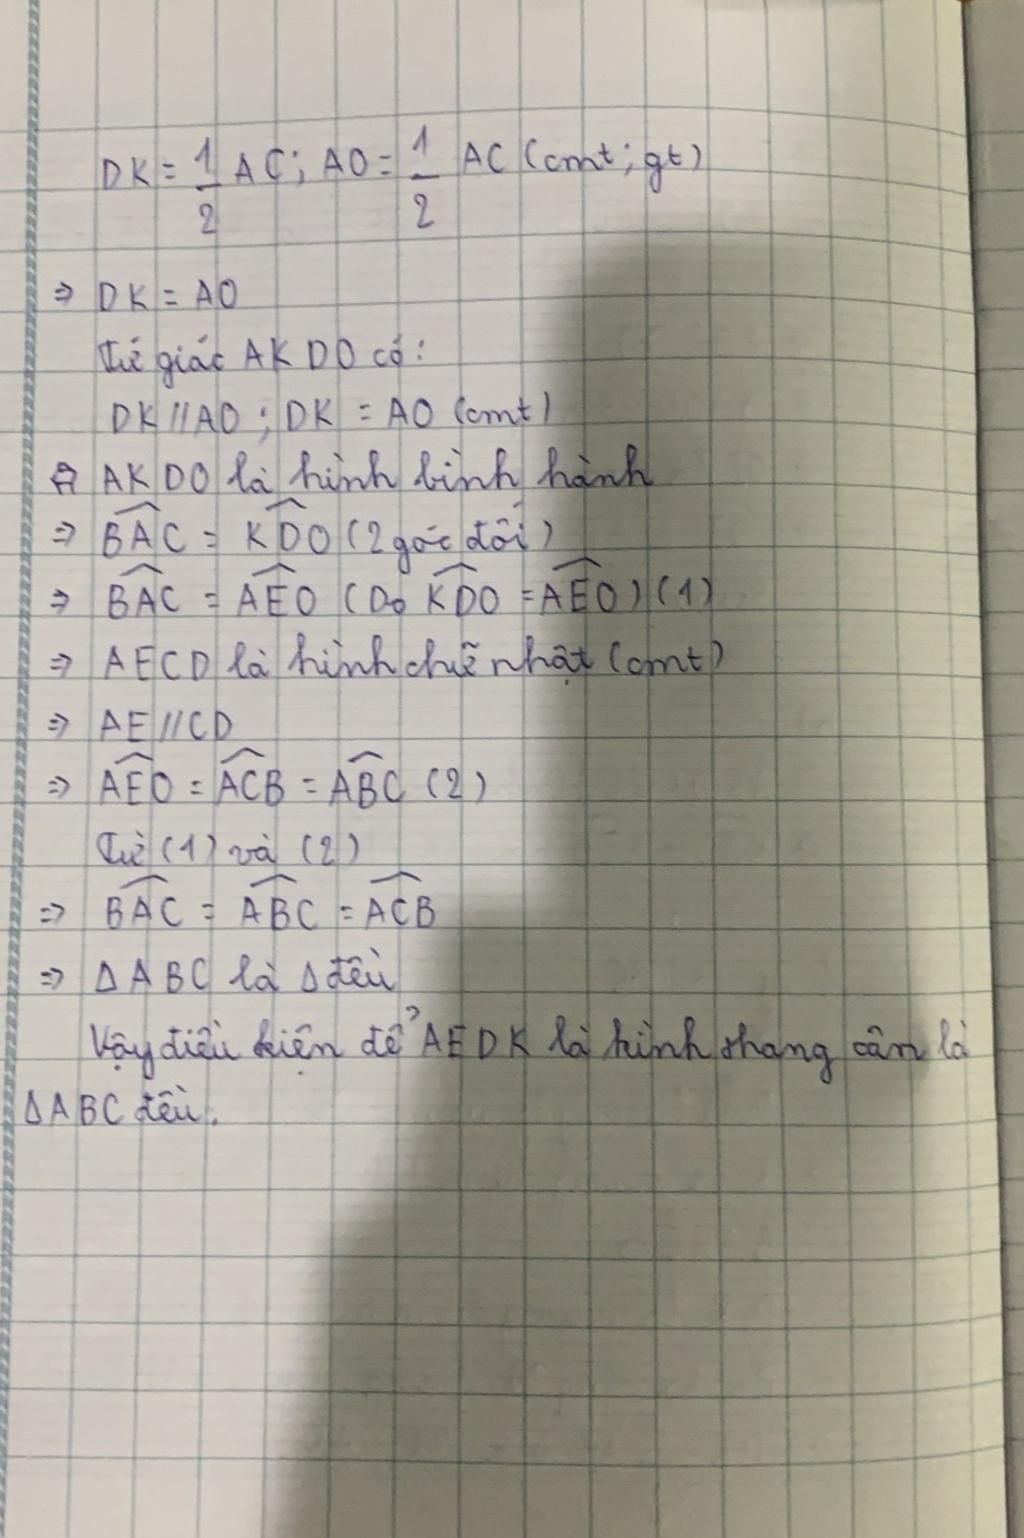 DK = 1/2 AC; AO = 1/2 AC (cmt; gt)
⇒ DK = AO
Tứ giác AKDO có:
DK // AO ; DK = AO (cmt)
⇒ AKDO là hình bình hành
⇒ \widehat{BAC} = \widehat{KDO} (2 góc đối)
⇒ \widehat{BAC} = \widehat{AEO} (Do \widehat{KDO} = \widehat{AEO}) (1)
⇒ AECD là hình chữ nhật (cmt)
⇒ AE // CD
⇒ \widehat{AEO} = \widehat{ACB} = \widehat{ABC} (2)
Từ (1) và (2)
⇒ \widehat{BAC} = \widehat{ABC} = \widehat{ACB}
⇒ Δ ABC là Δ đều
Vậy điều kiện để AEDK là hình thang cân là
Δ ABC đều.